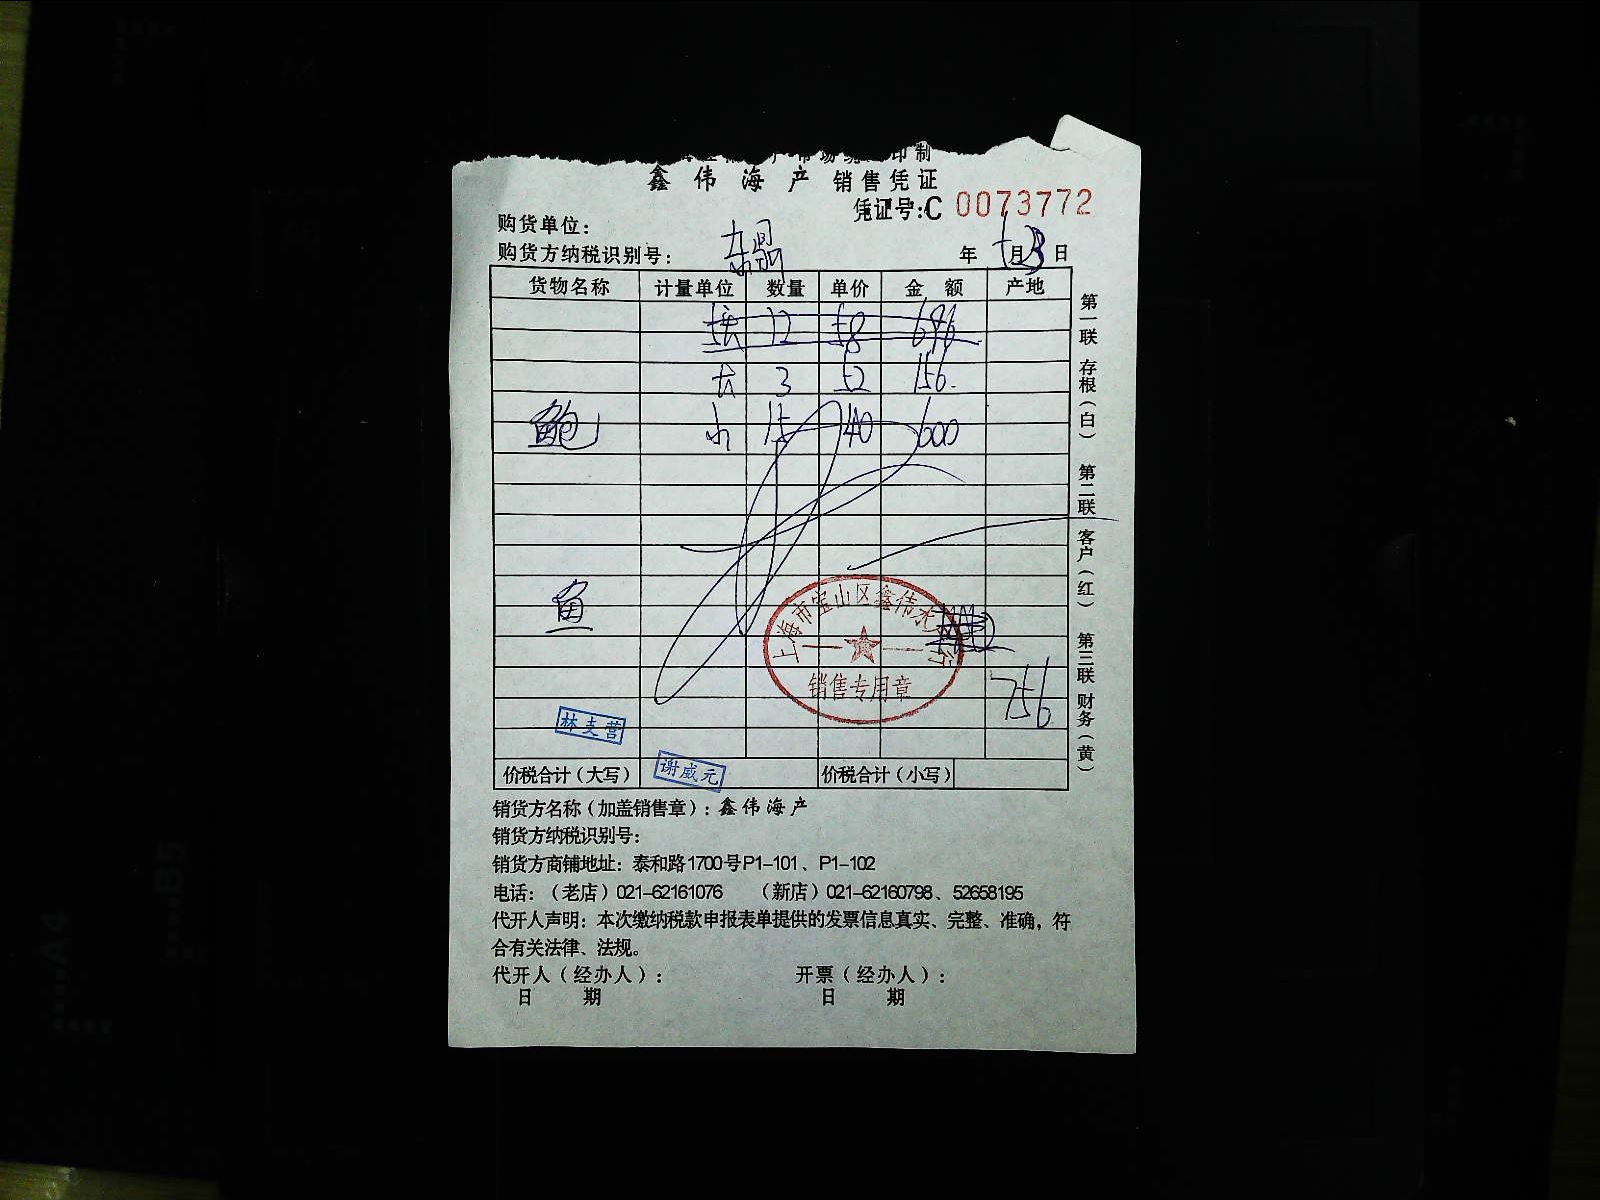 印制
鑫伟海产 销售凭证
凭证号:C 0073772
购货单位:
购货方纳税识别号: 年 月 日
货物名称 计量单位 数量 单价 金额 产地
12 58 696
大 3 52 156
鲍 小 15 40 600
鱼
上海市宝山区鑫伟水产行
销售专用章
756
林支营
谢威元
价税合计(大写) 价税合计(小写)
第一联 存根(白) 第二联 客户(红) 第三联 财务(黄)
销货方名称(加盖销售章):鑫伟海产
销货方纳税识别号:
销货方商铺地址:泰和路1700号P1-101、P1-102
电话:(老店)021-62161076 (新店)021-62160798、52658195
代开人声明:本次缴纳税款申报表单提供的发票信息真实、完整、准确,符
合有关法律、法规。
代开人(经办人): 开票(经办人):
日 期 日 期